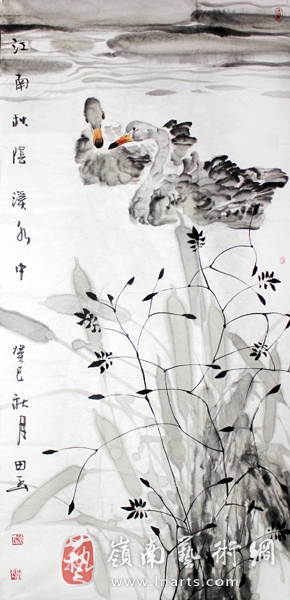 江南秋陰溪水中
癸巳秋月田
藝 嶺南藝術網
www.lnarts.com